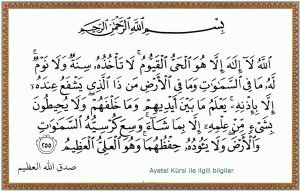 بِسْمِ اللَّهِ الرَّحْمَٰنِ الرَّحِيمِ
اللَّهُ لَا إِلَٰهَ إِلَّا هُوَ الْحَيُّ الْقَيُّومُ لَا تَأْخُذُهُ سِنَةٌ وَلَا نَوْمٌ
لَهُ مَا فِي السَّمَٰوَاتِ وَمَا فِي الْأَرْضِ مَنْ ذَا الَّذِي يَشْفَعُ عِنْدَهُ
إِلَّا بِإِذْنِهِ يَعْلَمُ مَا بَيْنَ أَيْدِيهِمْ وَمَا خَلْفَهُمْ وَلَا يُحِيطُونَ
بِشَيْءٍ مِنْ عِلْمِهِ إِلَّا بِمَا شَاءَ وَسِعَ كُرْسِيُّهُ السَّمَٰوَاتِ
وَالْأَرْضَ وَلَا يَئُودُهُ حِفْظُهُمَا وَهُوَ الْعَلِيُّ الْعَظِيمُ ٢٥٥
صدق الله العظيم
Ayetel Kürsi ile ilgili bilgiler